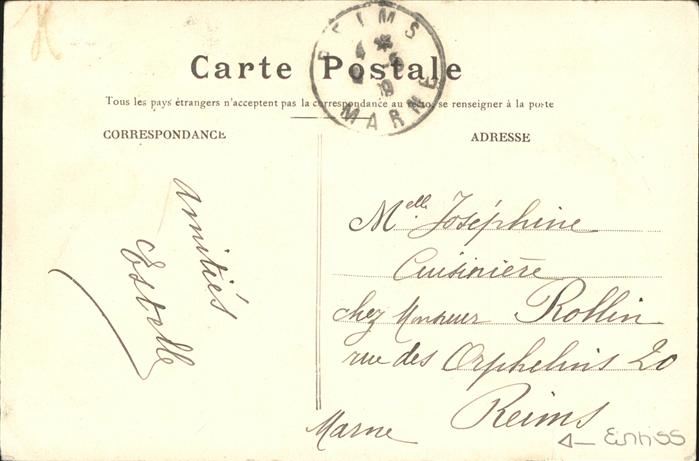 Carte Postale
Tous les pays étrangers n'acceptent pas la correspondance au recto, se renseigner à la poste
CORRESPONDANCE
ADRESSE
REIMS
MARNE
amitiés
Estelle
Melle. Joséphine
Cuisinière
chez Monsieur Rollin
rue des Orphelins 20
Reims
Marne